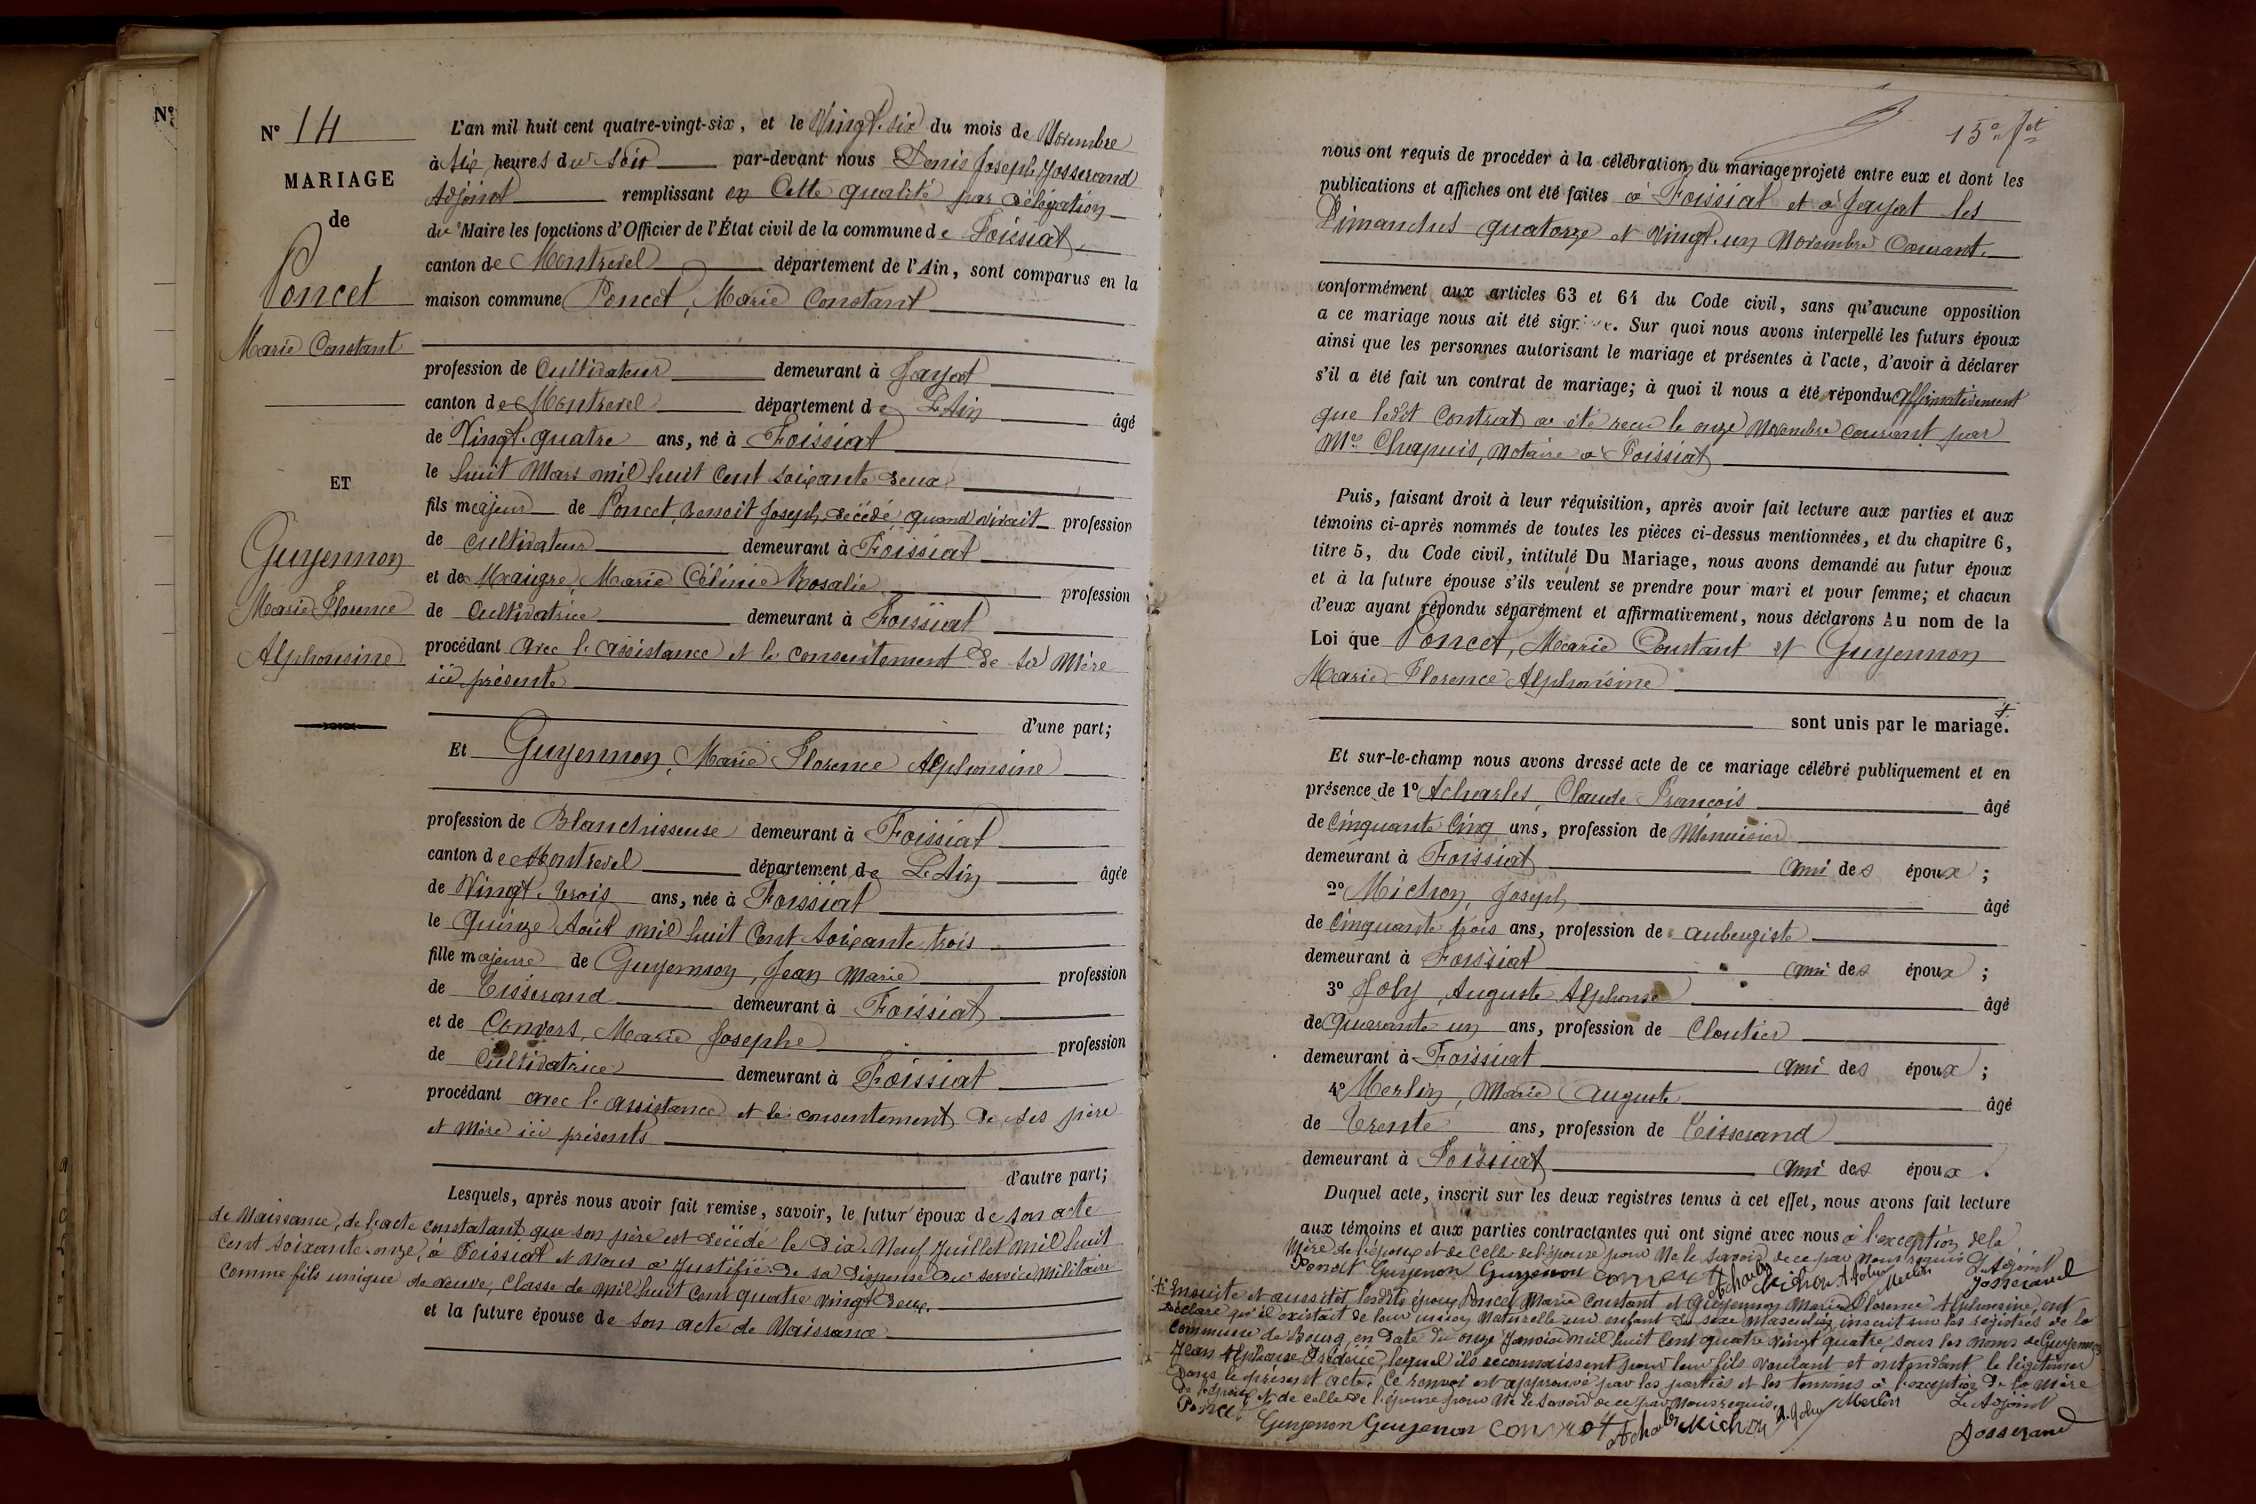 N°
N° 14
MARIAGE
de
Poncet
Marie Constant
ET
Guyennon
Marie Florence
Alphonsine
L'an mil huit cent quatre-vingt-six, et le Vingt-six du mois de Novembre
à six heures du soir par-devant nous Denis Joseph Josserand
Adjoint remplissant en Cette qualité par délégation
du Maire les fonctions d'Officier de l'État civil de la commune de Foissiat,
canton de Montrevel département de l'Ain, sont comparus en la
maison commune Poncet, Marie Constant
profession de Cultivateur demeurant à Jayat
canton de Montrevel département de L'Ain âgé
de Vingt-quatre ans, né à Foissiat
le huit Mars mil huit Cent soixante deux
fils majeur de Poncet, Benoit Joseph, décédé, quand vivait profession
de cultivateur demeurant à Foissiat
et de Maigre, Marie Célinie Rosalie profession
de Cultivatrice demeurant à Foissiat
procédant avec l'assistance et le consentement de sa Mère
ici présente
d'une part;
Et Guyennon, Marie Florence Alphonsine
profession de Blanchisseuse demeurant à Foissiat
canton de Montrevel département de L'Ain âgée
de Vingt-trois ans, née à Foissiat
le Quinze Août mil huit Cent soixante trois
fille majeure de Guyennon, Jean Marie profession
de Tisserand demeurant à Foissiat
et de Convers, Marie Josephe profession
de Cultivatrice demeurant à Foissiat
procédant avec l'assistance et le consentement de ses père
et Mère ici présents
d'autre part;
Lesquels, après nous avoir fait remise, savoir, le futur époux de son acte
de Naissance, de l'acte constatant que son père est décédé le Dix-Neuf Juillet Mil huit
Cent soixante-onze, à Foissiat et Nous a Justifié de sa dispense du service Militaire
Comme fils unique de veuve, Classe de Mil huit Cent quatre vingt deux.
et la future épouse de son acte de Naissance
15e ft
nous ont requis de procéder à la célébration du mariage projeté entre eux et dont les
publications et affiches ont été faites à Foissiat et à Jayat les
Dimanches quatorze et Vingt-un Novembre Courant.
conformément aux articles 63 et 64 du Code civil, sans qu'aucune opposition
a ce mariage nous ait été signifiée. Sur quoi nous avons interpellé les futurs époux
ainsi que les personnes autorisant le mariage et présentes à l'acte, d'avoir à déclarer
s'il a été fait un contrat de mariage; à quoi il nous a été répondu affirmativement
que ledit Contrat a été recu le onze Novembre courant par
Me Chapuis, Notaire à Foissiat
Puis, faisant droit à leur réquisition, après avoir fait lecture aux parties et aux
témoins ci-après nommés de toutes les pièces ci-dessus mentionnées, et du chapitre 6,
titre 5, du Code civil, intitulé Du Mariage, nous avons demandé au futur époux
et à la future épouse s'ils veulent se prendre pour mari et pour femme; et chacun
d'eux ayant répondu séparément et affirmativement, nous déclarons Au nom de la
Loi que Poncet, Marie Constant et Guyennon
Marie Florence Alphonsine
sont unis par le mariage.
Et sur-le-champ nous avons dressé acte de ce mariage célébré publiquement et en
présence de 1° Acharles, Claude François âgé
de Cinquante Cinq ans, profession de Menuisier
demeurant à Foissiat ami des époux;
2° Michon, Joseph âgé
de Cinquante trois ans, profession de aubergiste
demeurant à Foissiat ami des époux;
3° Joly, Auguste Alphonse âgé
de Quarante un ans, profession de Cloutier
demeurant à Foissiat ami des époux;
4° Merlin, Marie Auguste âgé
de Trente ans, profession de Tisserand
demeurant à Foissiat ami des époux.
Duquel acte, inscrit sur les deux registres tenus à cet effet, nous avons fait lecture
aux témoins et aux parties contractantes qui ont signé avec nous à l'exception de la
Mère de l'époux et de Celle de l'épouse pour Ne le savoir de ce par Nous requis L'Adjoint
Poncet Guyenon Guyenon Acharles Michon A Joly Merlin Josserand
+ Ensuite et aussitôt lesdits époux Poncet Marie Constant et Guyennon Marie Florence Alphonsine, ont
déclaré qu'il existait de leur union Naturelle un enfant du sexe Masculin, inscrit sur les registres de la
Commune de Bourg, en date du onze Janvier mil huit Cent quatre vingt quatre, sous les noms de Guyennon
Jean Alphonse, lequel ils reconnaissent pour leur fils voulant et entendant le légitimer
dans le présent acte. Ce renvoi est approuvé par les parties et les temoins à l'exception de la Mère
de l'époux et de celle de l'épouse pour Ne le savoir de ce par Nous requis. L'Adjoint
Poncet Guyenon Guyenon Acharles Michon A. Joly Merlin Josserand